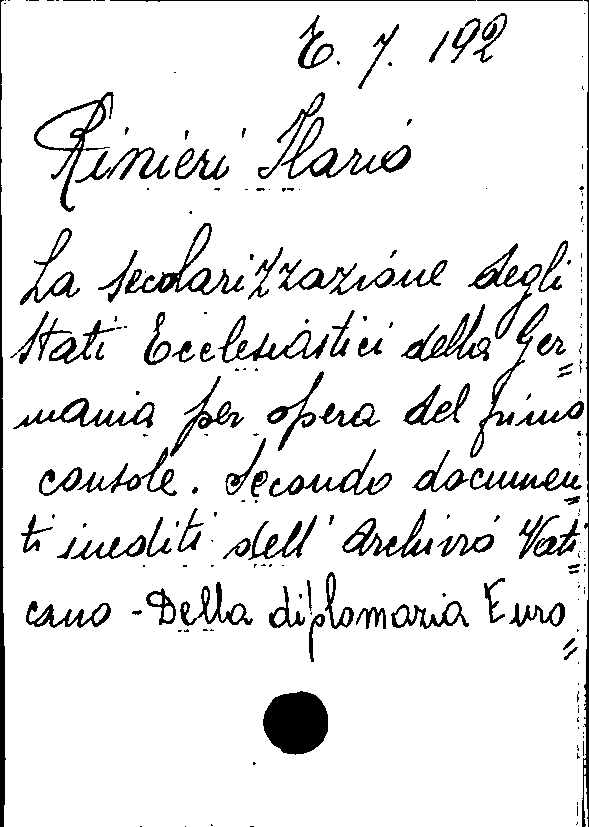 E. 7. 192
Rinieri Ilario
La secolarizzazione degli
Stati Ecclesiastici della Ger=
mania per opera del primo
console. Secondo documen=
ti inediti dell' Archivio Vati=
cano - Della diplomazia Euro=